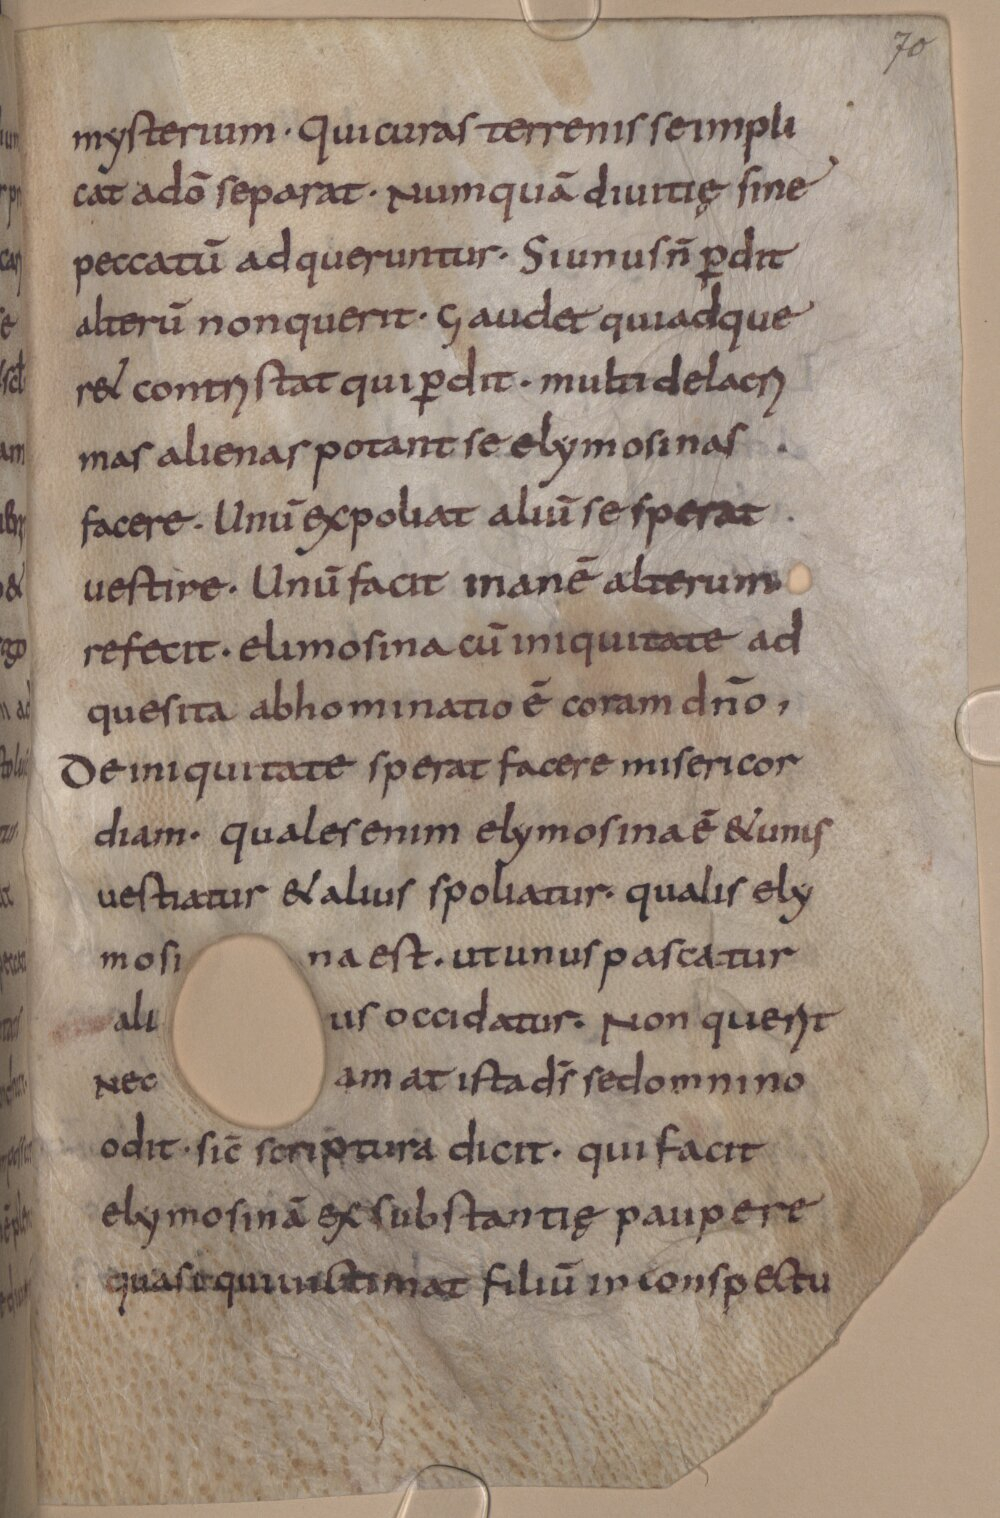 70
mysterium · Qui curas terrenis se impli
cat adō separat · Numquā diuitię sine
peccatū adqueruntur · Si unus n̄ ꝑdit
alterū non querit · Gaudet qui adque
r& contristat qui ꝑdit · multi de lacri
mas alienas potant se elymosinas
facere · Unū expoliat aliū se sperat
uestire · Unū facit inanē alterum
refecit · elimosina cū iniquitate ad
quesita abhominatio ē coram dn̄o,
De iniquitate sperat facere misericor
diam · quales enim elymosina ē & unis
uestiatur & alius spoliatur · qualis ely
mosi na est · ut unus pascatur
ali us occidatur · Non querit
nec amat ista ds̄ sed omnino
odit · sic̄ scriptura dicit · qui facit
elymosinā ex substantię paupere
quasi qui uictimat filiū in conspectu